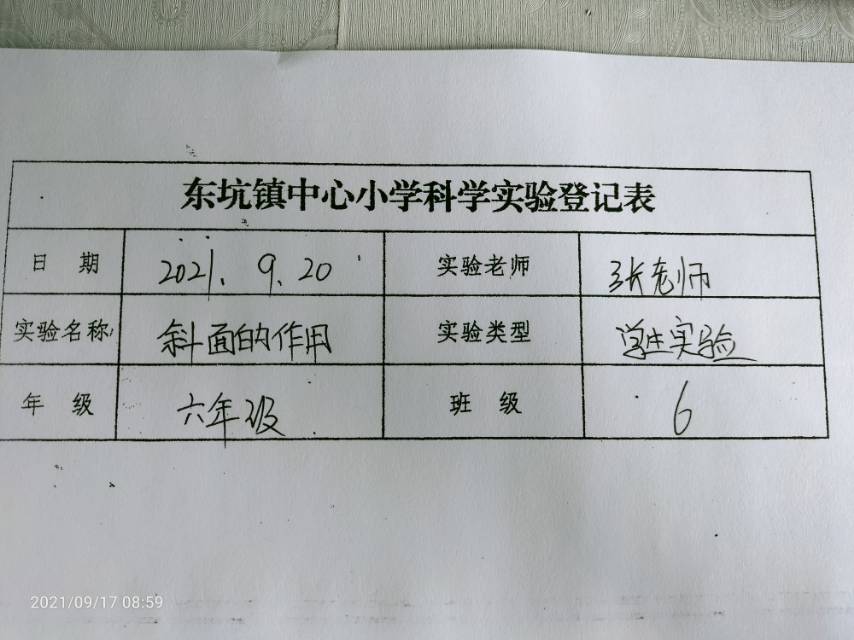 东坑镇中心小学科学实验登记表
日 期 2021.9.20 实验老师 张老师
实验名称 斜面的作用 实验类型 学生实验
年 级 六年级 班 级 6
2021/09/17 08:59